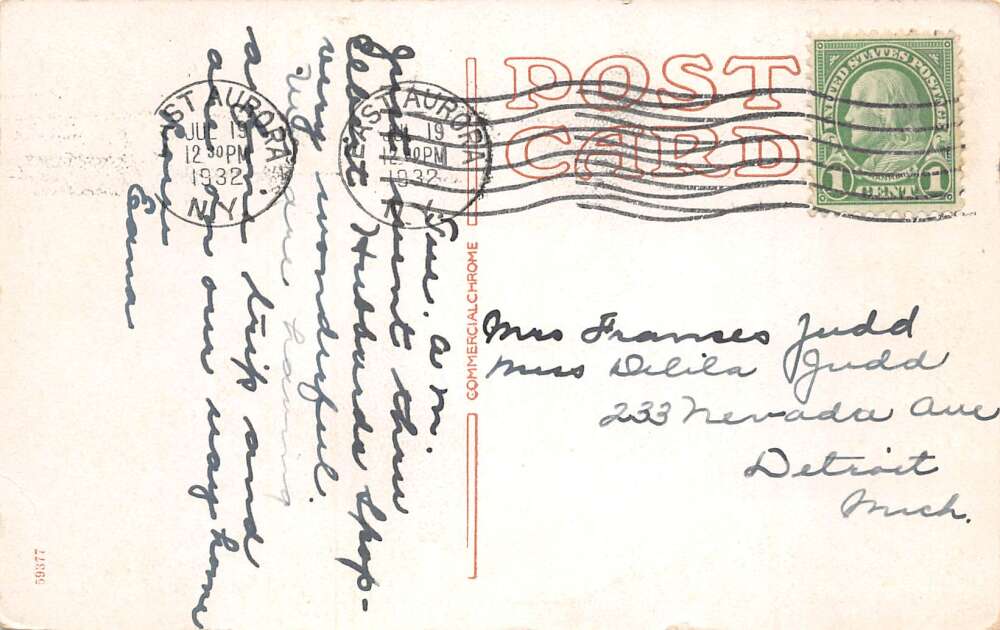 POST
CARD
UNITED STATES POSTAGE
1 CENT 1
EAST AURORA
JUL 19
12 30 PM
1932
N.Y.
EAST AURORA
JUL 19
12 30 PM
1932
N.Y.
Tue. a m.
Just went thru
Elbert Hubbards Shop-
very wonderful.
We are having
a fine trip and
are on our way home
Love
COMMERCIALCHROME
Mrs Franses Judd
Miss Delila Judd
233 Nevada Ave
Detroit
Mich.
59377